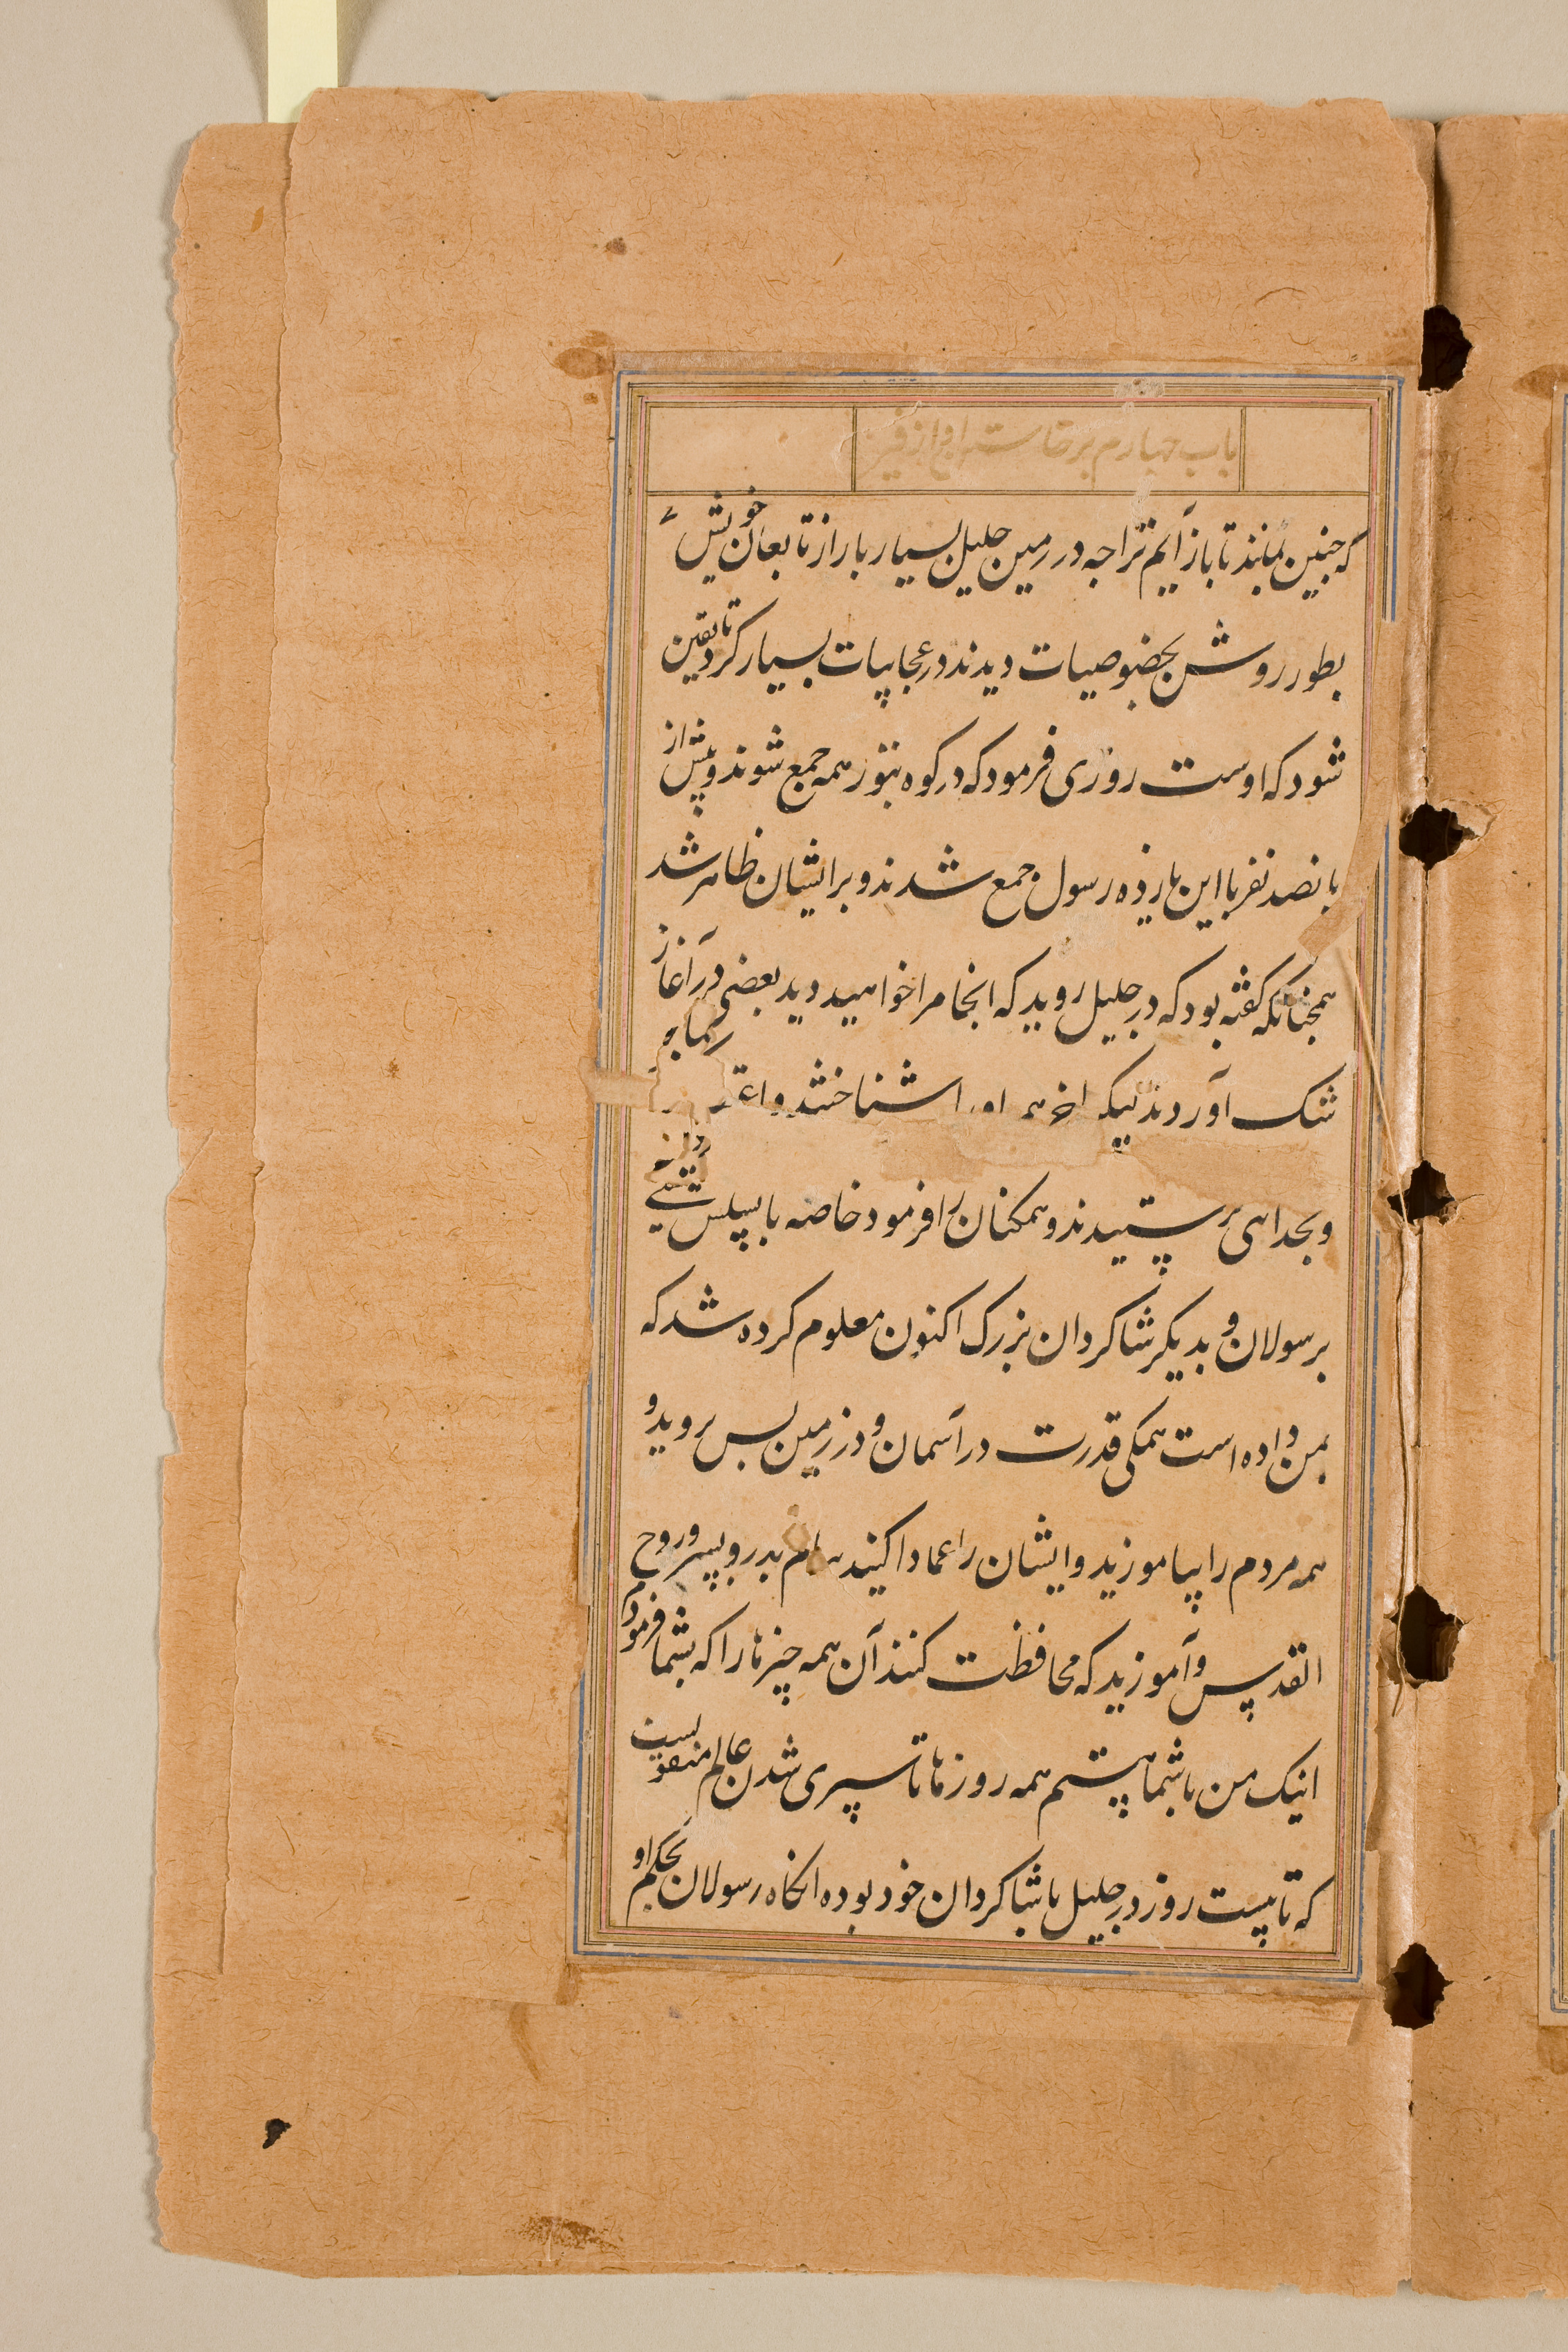 باب چهارم برخاستن او از قبر
که چنین بماند تا باز آیم ترا چه در زمین جلیل بسیار بار از تابعان خویش
بطور روشن بخصوصیات دیدند در عجایبات بسیار کرد تا یقین
شود که اوست روزی فرمود که در کوه بتور همه جمع شوند و پیش از
پانصد نفر با این یازده رسول جمع شدند و بر ایشان ظاهر شد
همچنانکه کفته بود که در جلیل روید که انجا مرا خواهید دید بعضی در آغاز
شک آوردند لیکن اخر همه او را شناختند و
و بخداهی پرستیدند و همکنان را فرمود خاصه با پپلس
برسولان و بدیکر شاکردان بزرک اکنون معلوم کرده شد که
بمن داده است همکی قدرت در آسمان و در زمین پس بروید و
همه مردم را بیاموزید و ایشان را عماد اکنید بنام پدر و پسر و روح
القدس و آموزید که محافظت کنند آن همه چیزها را که بشما فرمودم
اینک من با شما هستم همه روزها تا سپری شدن عالم منقولست
که تا بیست روز در جلیل با شاکردان خود بوده انکاه رسولان بحکم او